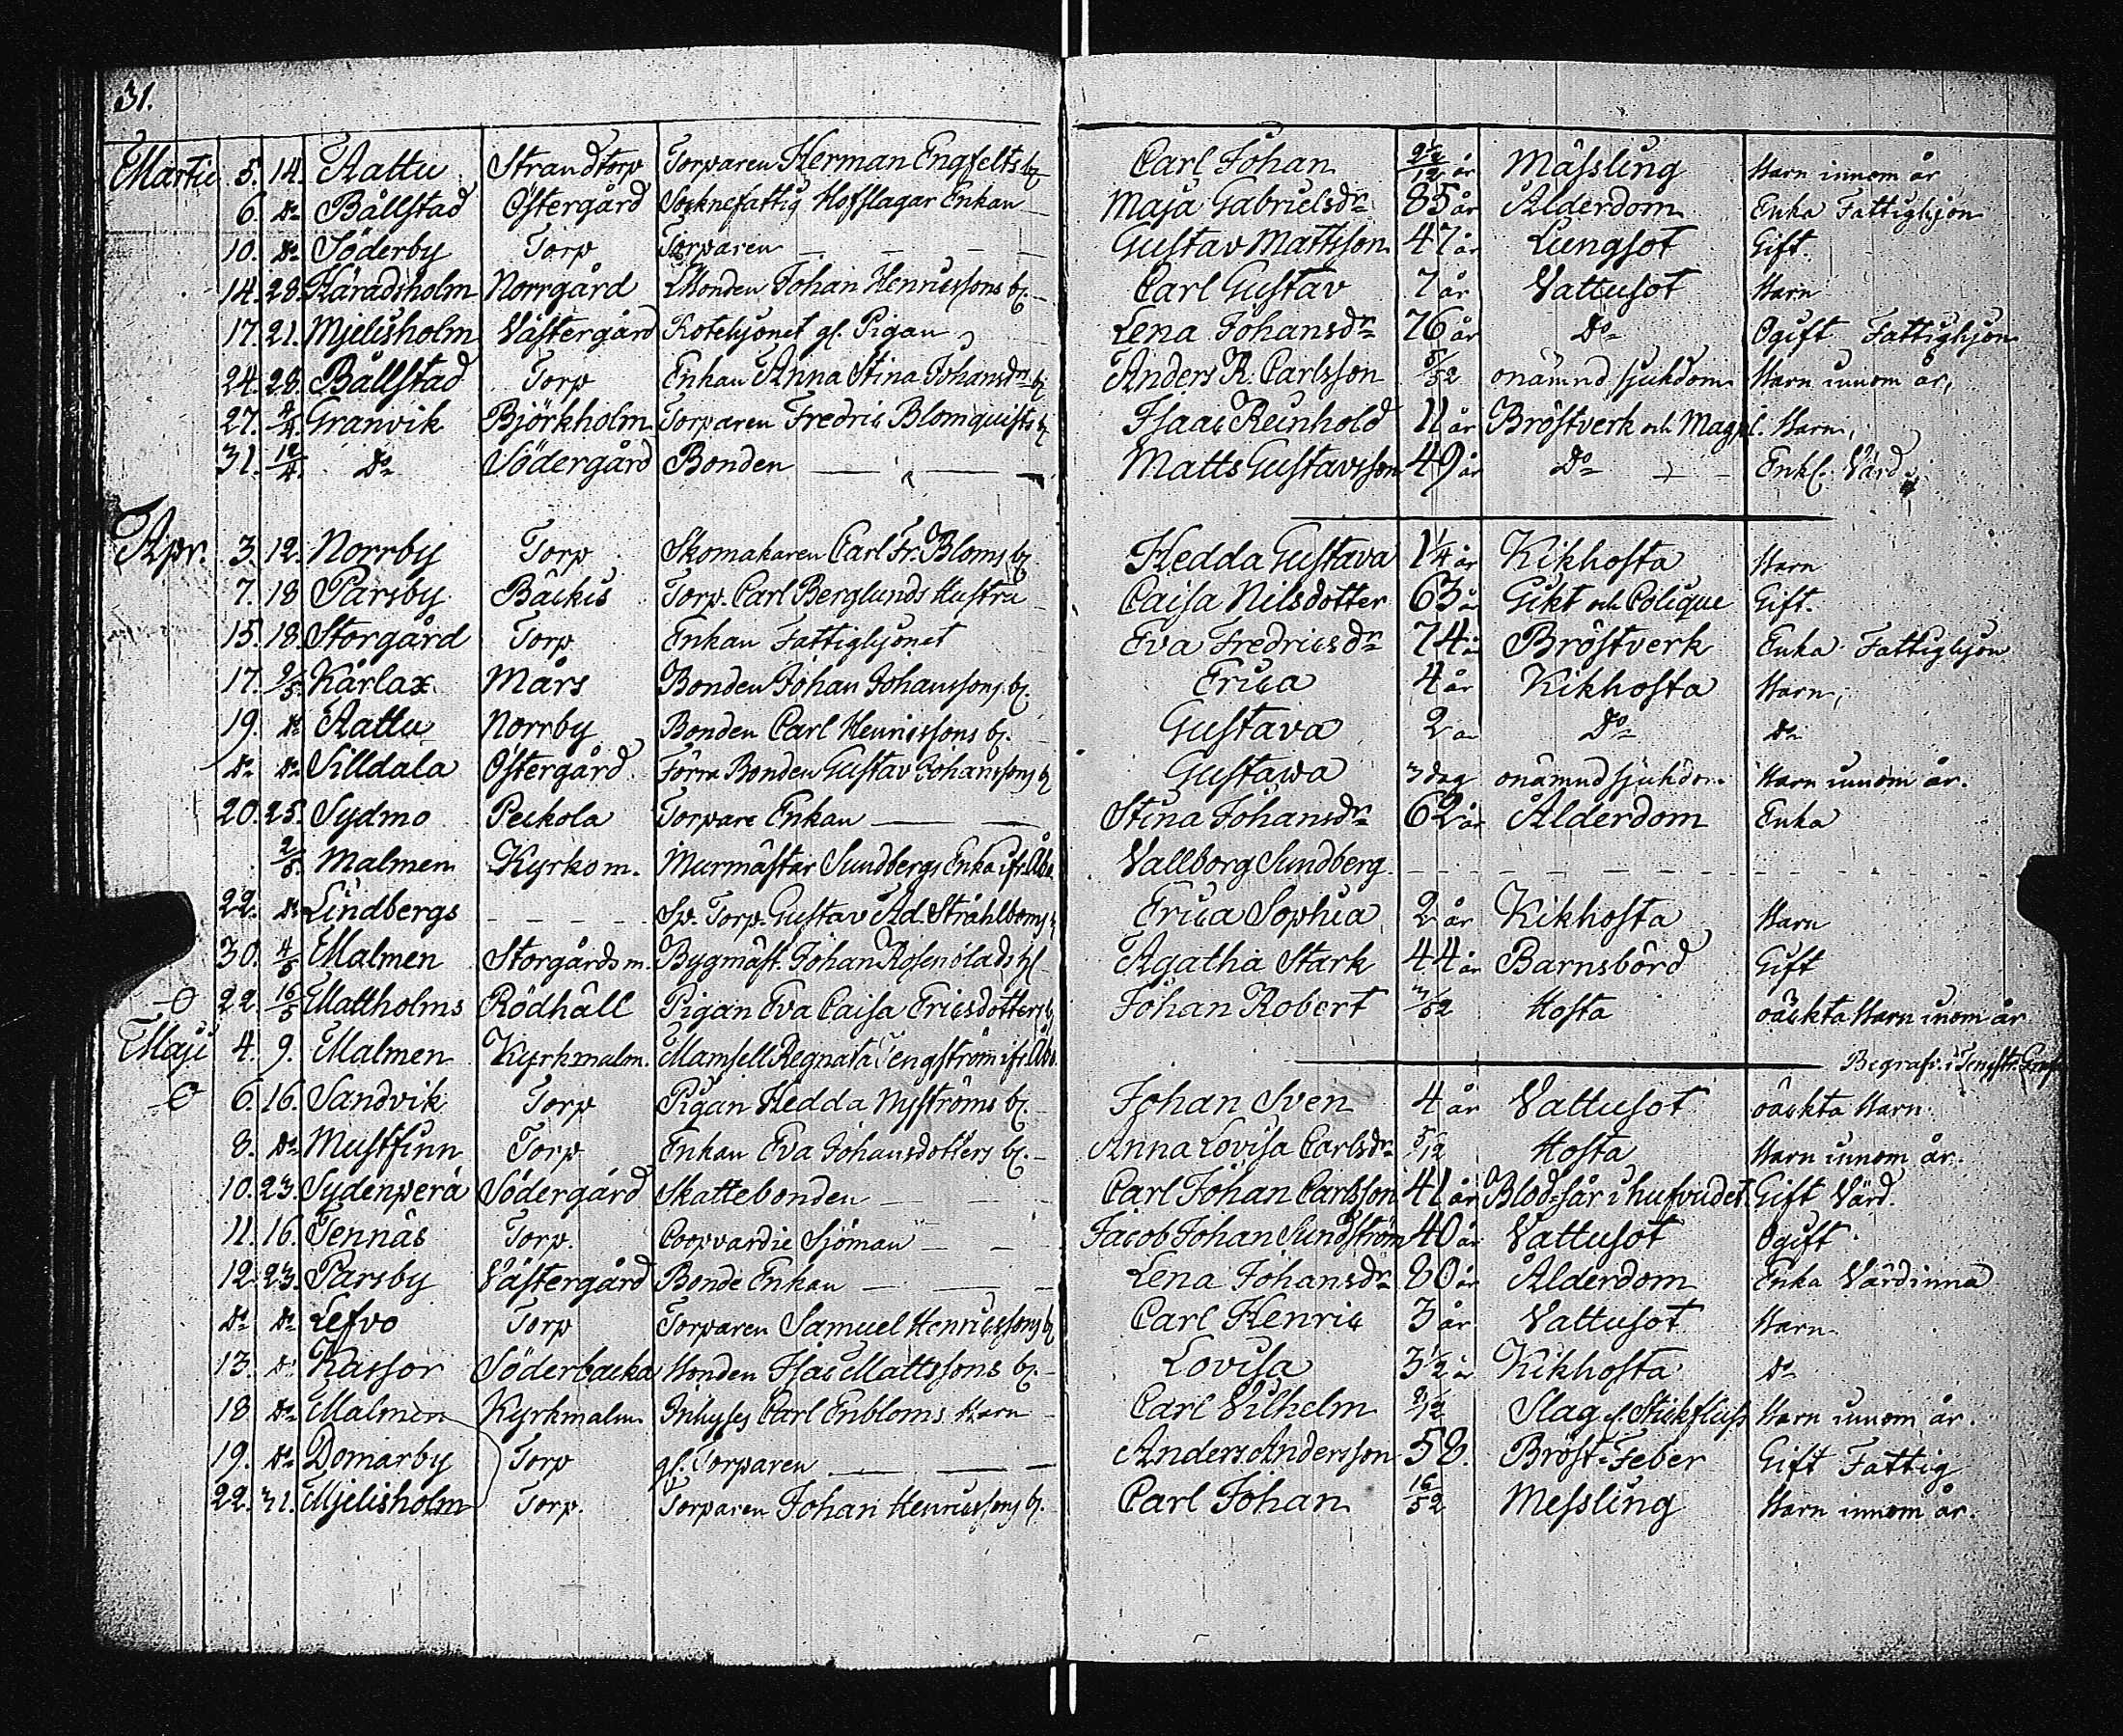 31.
Martii 5. 14. Aattu Strandtorp Torparen Herman Engfelts b. Carl Johan 2½/12 år Mässling Barn innom år
6. Do Bållstad Östergård Socknefattig Hofslagar Enkan Maja Gabrielsdr 85 år Ålderdom Enka Fattighjon
10. Do Söderby Torp Torparen Gustav Mattsson 47 år Lungsot Gift.
14. 28. Häradsholm Norrgård Bonden Johan Henricssons b. Carl Gustav 7 år Vattusot Barn
17. 21. Mjelisholm Västergård Rotehjonet gl. Pigan Lena Johansdr 76 år Do Ogift Fattighjon
24. 28. Bållstad Torp Enkan Anna Stina Johansdr b Anders R. Carlsson 5/52 onämnd sjukdom Barn innom år,
27. 4/4 Granvik Björkholm Torparen Fredric Blomquists b Isaac Reinhold 11 år Bröstverk och Magpl. Barn,
31. 12/4. Do Södergård Bonden Matts Gustavsson 49 år Do Enkl. Värd
Apr. 3. 12. Norrby Torp Skomakaren Carl Fr. Bloms b. Hedda Gustava 1¼ år Kikhosta Barn
7. 18 Parsby Bäckis Torp. Carl Berglunds Hustru Caisa Nilsdotter 63 å Gikt och Colique Gift.
15. 18. Storgård Torp Enkan Fattighjonet Eva Fredricsdr 74 år Bröstverk Enka Fattighjon
17. 2/5. Kärlax Mårs Bonden Johan Johanssons b. Erica 4 år Kikhosta Barn,
19. Do Aattu Norrby Bonden Carl Henricssons b. Gustava 2 år Do Do
Do Do Silldala Östergård Förra Bonden Gustav Johanssons b Gustawa 3 dag onämnd sjukdom Barn innom år.
20. 25. Sydmo Peckola Torpare Enkan Stina Johansdr 62 år Ålderdom Enka
2/5. Malmen Kyrkom. Murmästar Sundbergs Enka ifr. Åbo Vallborg Sundberg
22. Do Lindbergs Sp. Torp. Gustav Ad. Stråhlboms b Erica Sophia 2 år Kikhosta Barn
30. 4/5 Malmen Storgårdsm. Bygmäst. Johan Rosenblads h. Agatha Stark 44 år Barnsbörd Gift
22. 16/5 Mattholms Rödhäll Pigan Eva Caisa Ericsdotters b Johan Robert 3/52 Hosta oäckta Barn inom år
Maji 4. 9. Malmen Kyrkmalm. Mamsell Regnata Tengström ifr. Åbo. Begrafv. i Tengstr. Graf
6. 16. Sandvik Torp Pigan Hedda Nyströms b. Johan Sven 4 år Vattusot oäckta Barn.
8. Do Mustfinn Torp Enkan Eva Johansdotters b. Anna Lovisa Carlsdr 5/12 Hosta Barn innom år.
10. 23. Sydenperä Södergård Skattebonden Carl Johan Carlsson 41 år Blod-sår i hufvudet. Gift Värd.
11. 16. Tennäs Torp. Coopvardie Sjöman Jacob Johan Sundström 40 år Vattusot Ogift
12. 23. Parsby Västergård Bonde Enkan Lena Johansdr 80 år Ålderdom Enka Värdinna
Do Do Lefvo Torp Torparen Samuel Henricssons b Carl Henric 3 år Vattusot Barn
13. Do Kassor Söderbacka Bonden Isac Mattssons b. Lovisa 3½ år Kikhosta Do
18 Do Malmen Kyrkmalm Inhyses Carl Enbloms Barn Carl Vilhelm Slag el. Stickfluss Barn innom år.
19. Do Domarby Torp gl. Torparen Anders Andersson 58. Bröst-Feber Gift Fattig
22. 31. Mjelisholm Torp. Torparen Johan Henricssons b. Carl Johan 16/52 Messling Barn innom år.